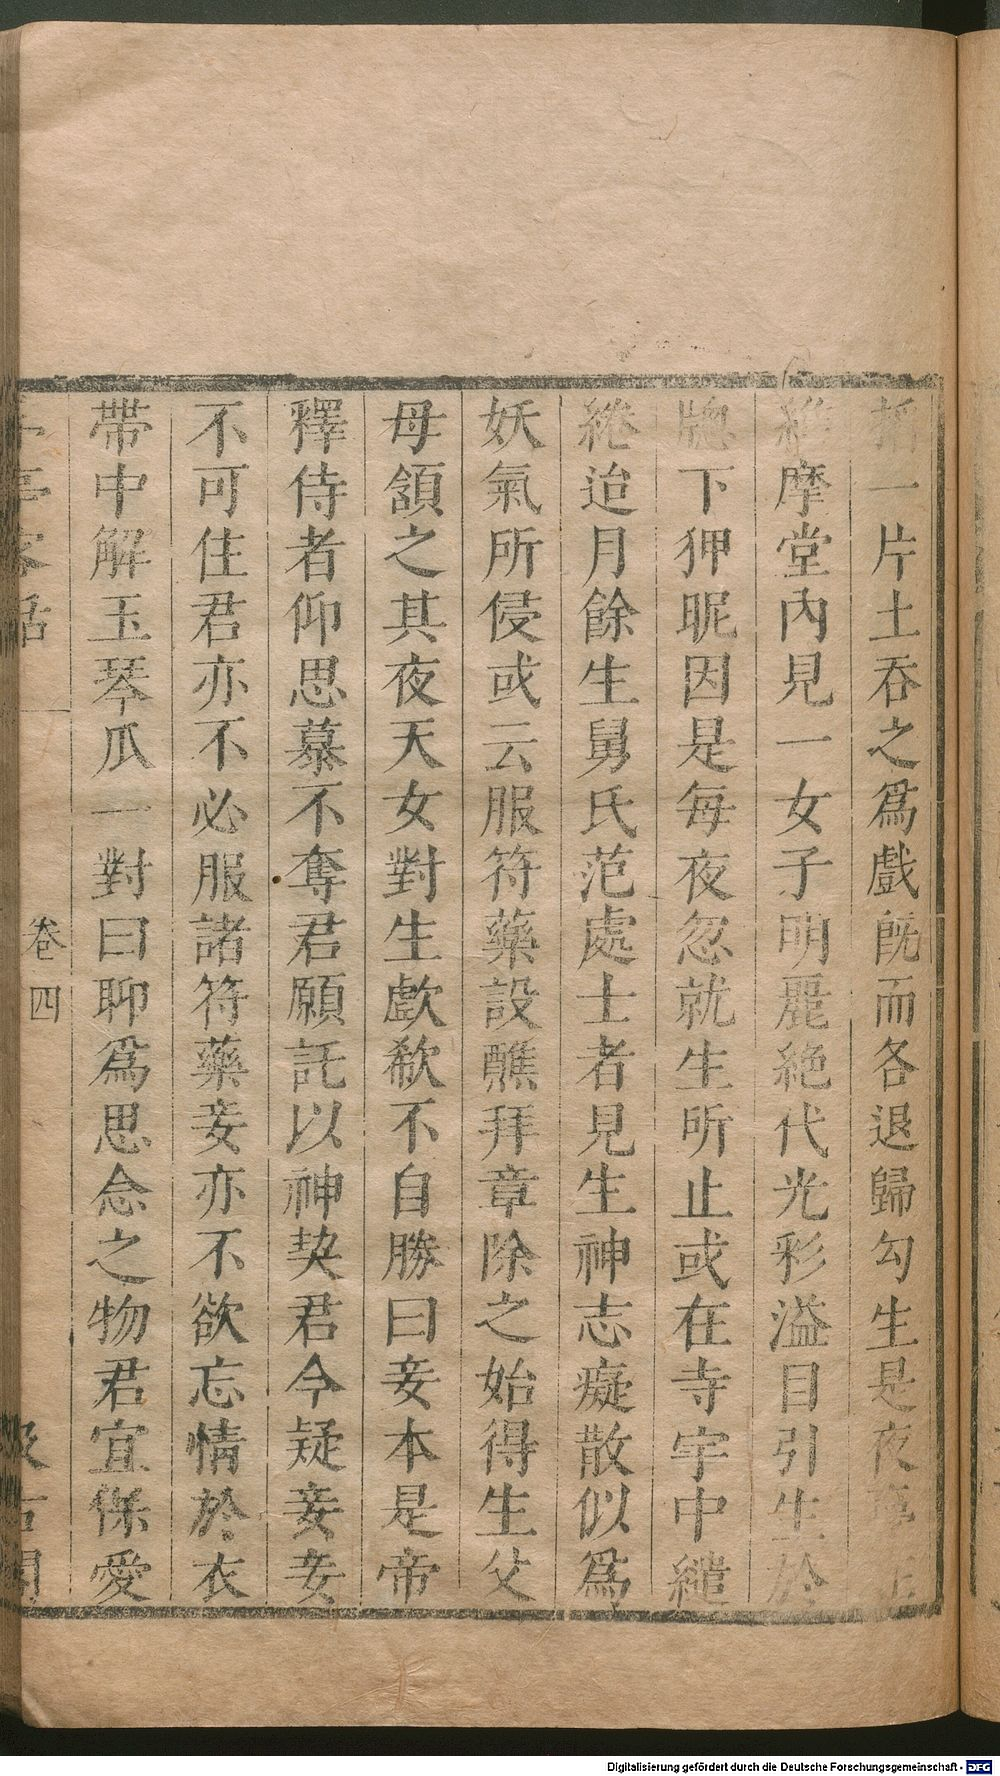 一片土吞之爲戲旣而各退歸勾生是夜
維摩堂內見一女子明麗絕代光彩溢目引生於
牕下狎昵因是每夜忽就生所止或在寺宇中繾
綣迨月餘生舅氏范處士者見生神志癡散似爲
妖氣所侵或云服符藥設醮拜章除之始得生父
母頷之其夜天女對生歔欷不自勝曰妾本是帝
釋侍者仰思慕不奪君願託以神契君今疑妾妾
不可住君亦不必服諸符藥妾亦不欲忘情於衣
帶中解玉琴瓜一對曰聊爲思念之物君宜保愛
亭客話
卷四
汲古閣
Digitalisierung gefördert durch die Deutsche Forschungsgemeinschaft - DFG